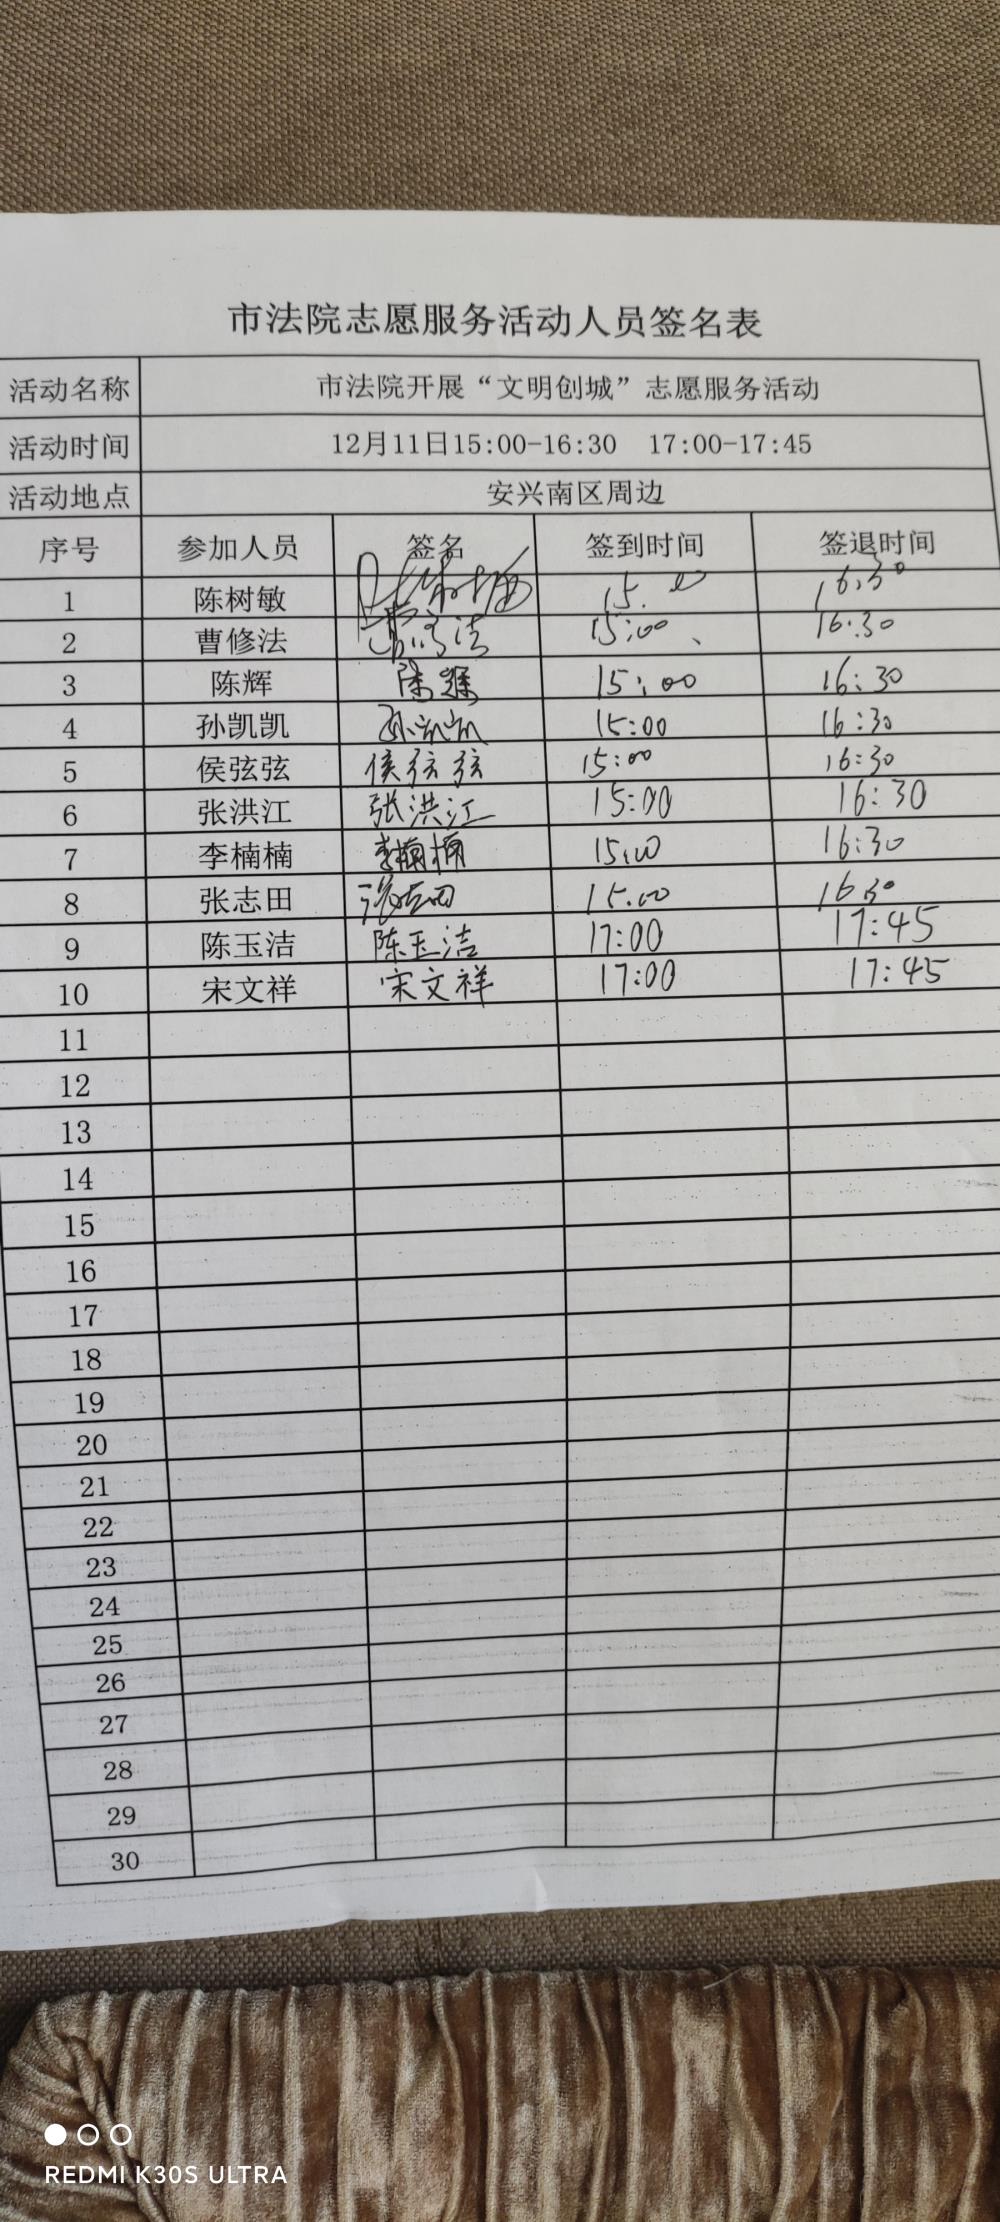 市法院志愿服务活动人员签名表
活动名称 市法院开展“文明创城”志愿服务活动
活动时间 12月11日15:00-16:30 17:00-17:45
活动地点 安兴南区周边
序号 参加人员 签名 签到时间 签退时间
1 陈树敏 陈树敏 15.00 16:30
2 曹修法 曹修法 15:00 16:30
3 陈辉 陈辉 15:00 16:30
4 孙凯凯 孙凯凯 15:00 16:30
5 侯弦弦 侯弦弦 15:00 16:30
6 张洪江 张洪江 15:00 16:30
7 李楠楠 李楠楠 15:00 16:30
8 张志田 张志田 15.00 16 30
9 陈玉洁 陈玉洁 17:00 17:45
10 宋文祥 宋文祥 17:00 17:45
11
12
13
14
15
16
17
18
19
20
21
22
23
24
25
26
27
28
29
30
REDMI K30S ULTRA